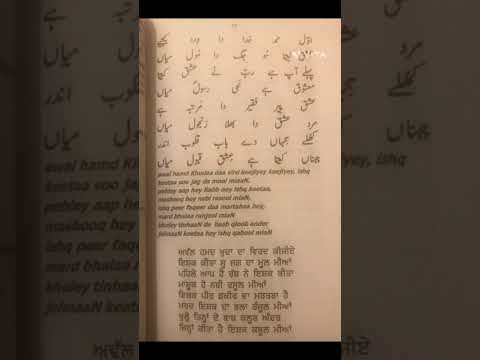 اوّل حمد خدا دا ورد کیجیے
عشق کیتا سو جگ دا مول میاں
پہلے آپ ہے ربّ نے عشق کیتا
معشوق ہے نبی رسول میاں
عشق پیر فقیر دا مرتبہ ہے
مرد عشق دا بھلا رنجول میاں
کھلے تنہاں دے باب قلوب اندر
جنہاں کیتا ہے عشق قبول میاں
awal hamd Khudaa daa vird keejiyey keejiyey, ishq
keetaa soo jag da mool miaaN
pehley aap hey Rabb ney ishq keetaa,
mashooq hey nabi rasool miaaN
ishq peer faqeer daa martabaa hey,
mard bhalaa ranjool miaaN
kholey tinhaaN de baab qloob ander,
jeinaaN keetaa hey ishq qabool miaaN
ਅਵੱਲ ਹਮਦ ਖੁਦਾ ਦਾ ਵਿਰਦ ਕੀਜੀਏ
ਇਸ਼ਕ ਕੀਤਾ ਸੂ ਜਗ ਦਾ ਮੂਲ ਮੀਆਂ
ਪਹਿਲੇ ਆਪ ਹੈ ਰੱਬ ਨੇ ਇਸ਼ਕ ਕੀਤਾ
ਮਾਸ਼ੂਕ ਹੈ ਨਬੀ ਰਸੂਲ ਮੀਆਂ
ਇਸ਼ਕ ਪੀਰ ਫ਼ਕੀਰ ਦਾ ਮਰਤਬਾ ਹੈ
ਮਰਦ ਇਸ਼ਕ ਦਾ ਭਲਾ ਰੰਜੂਲ ਮੀਆਂ
ਖੁੱਲ੍ਹੇ ਤਿਨ੍ਹਾਂ ਦੇ ਬਾਬ ਕਲੂਬ ਅੰਦਰ
ਜਿਨ੍ਹਾਂ ਕੀਤਾ ਹੈ ਇਸ਼ਕ ਕਬੂਲ ਮੀਆਂ